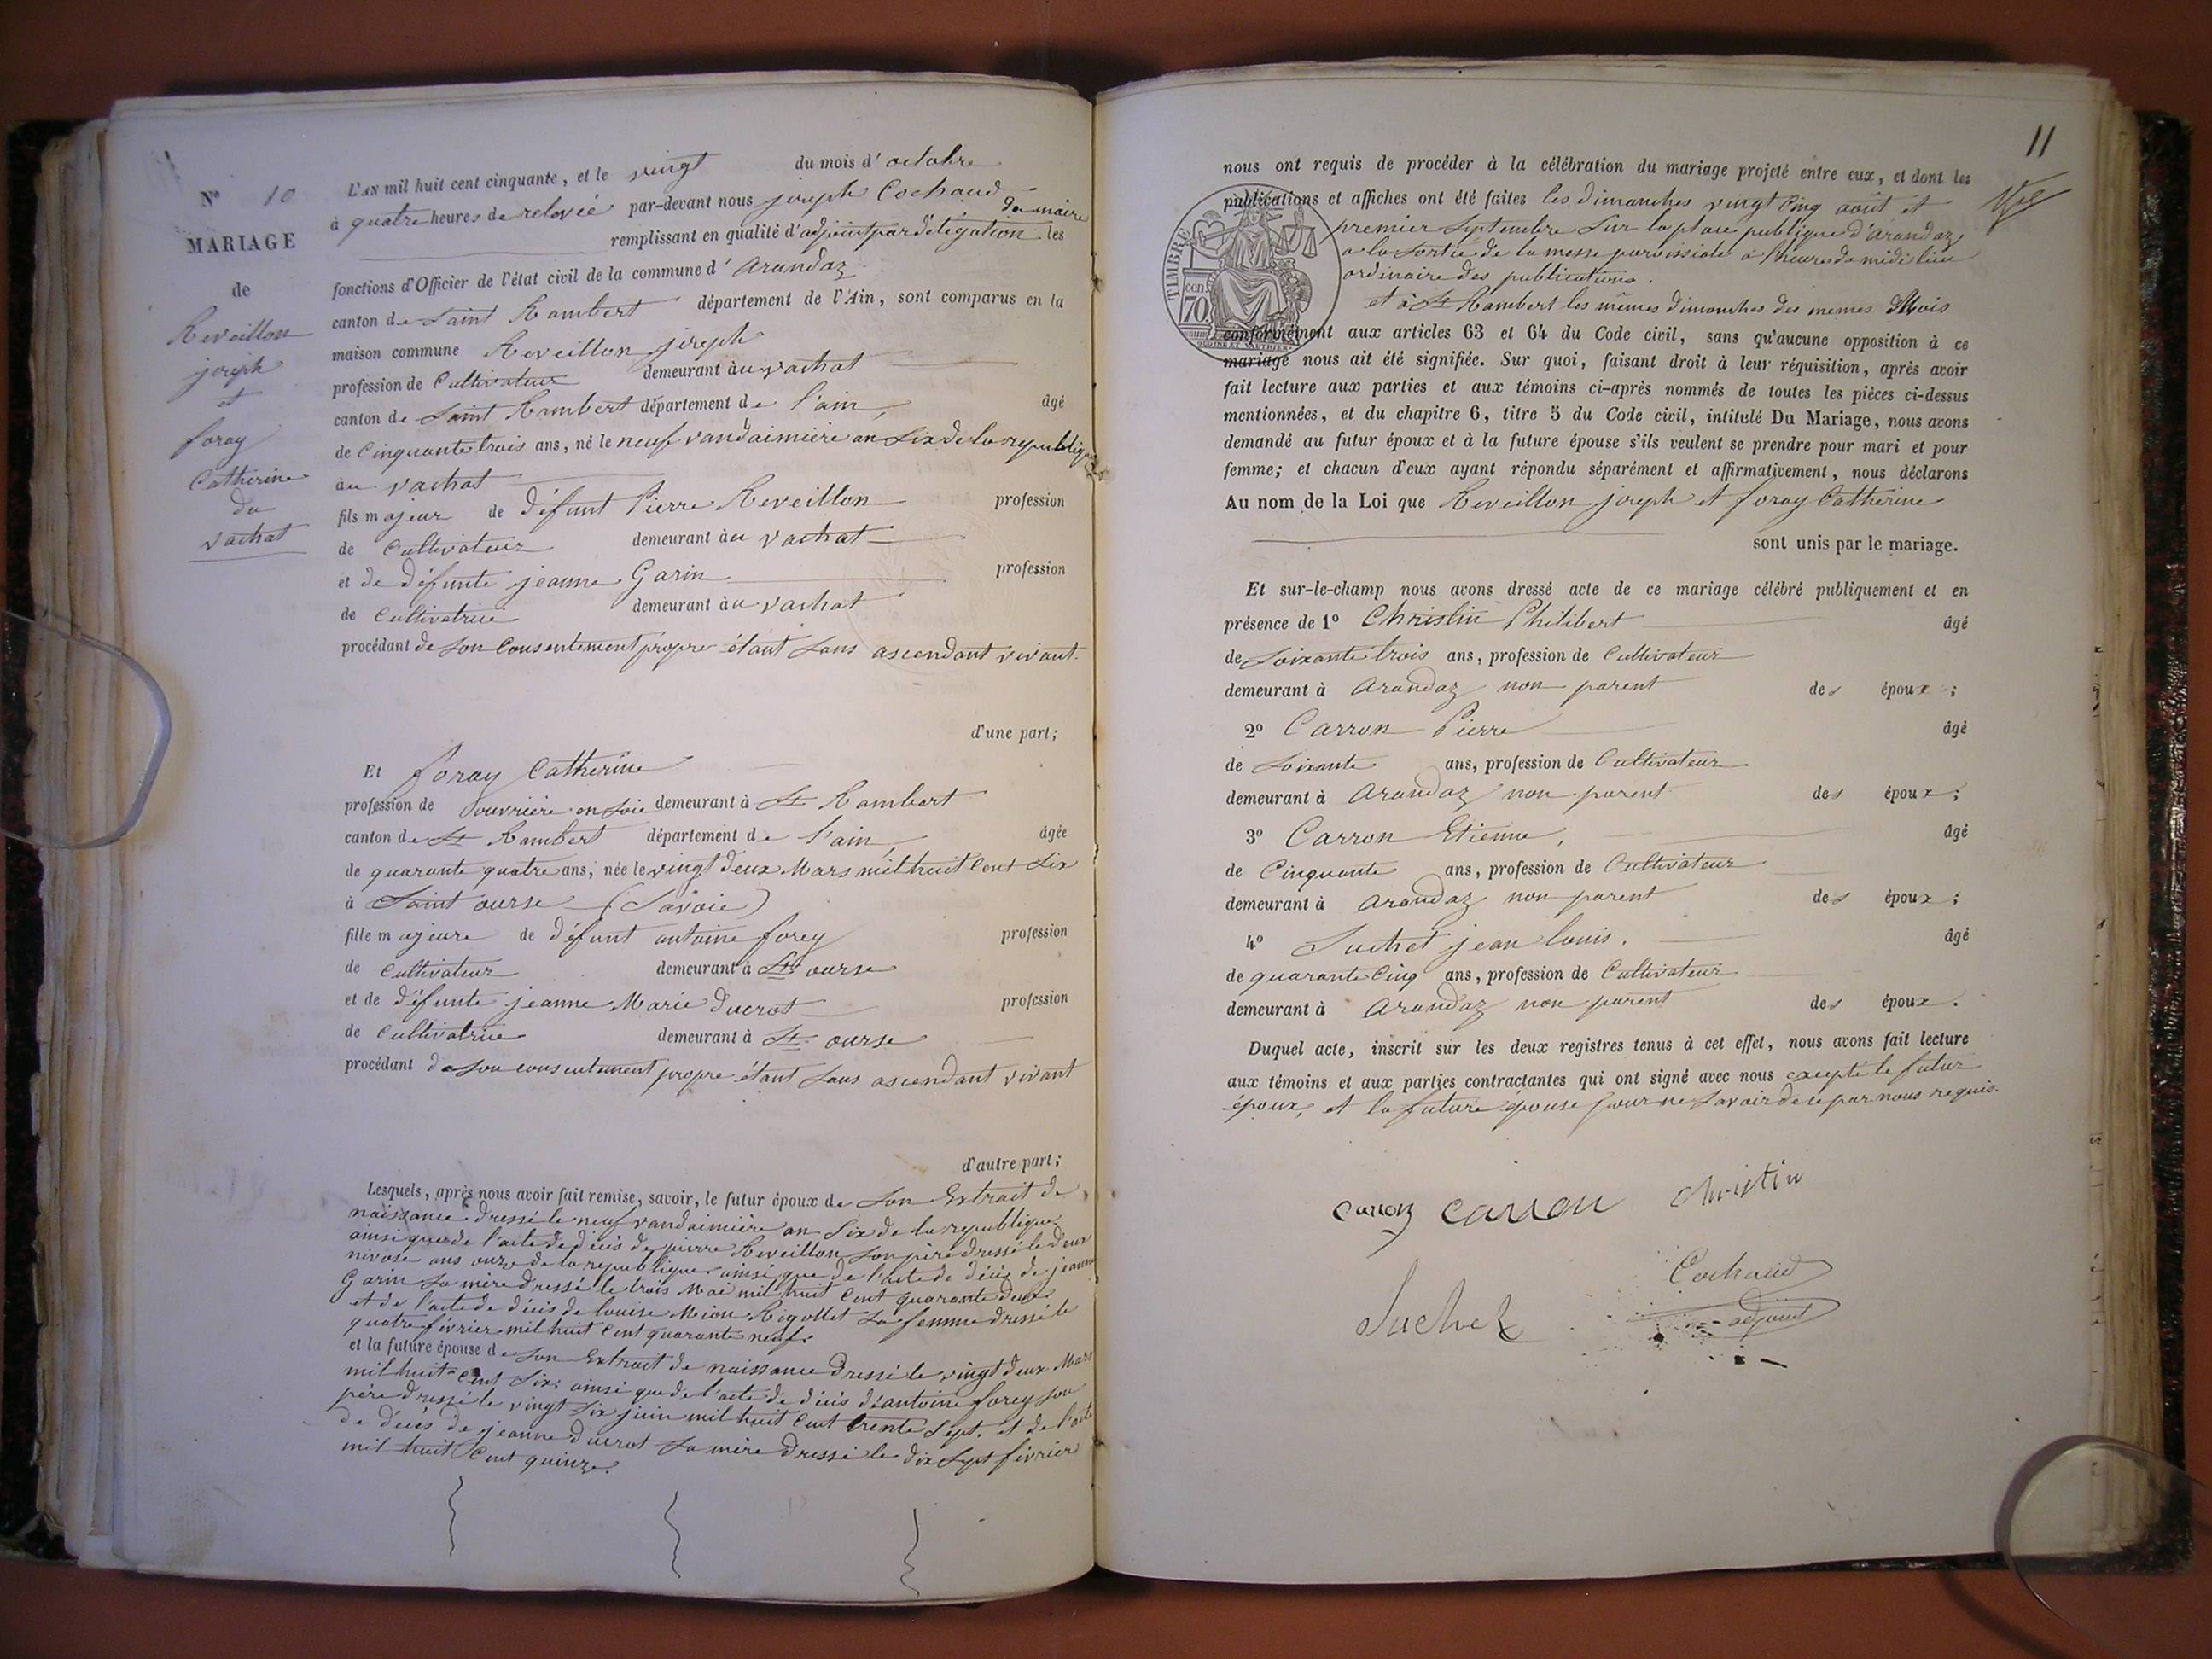 N° 10
MARIAGE
de
Reveillon
joseph
et
foray
Catherine
du
vachat
L'AN mil huit cent cinquante, et le vingt du mois d'octobre
à quatre heures de relevée par-devant nous joseph Cochaud
remplissant en qualité d'adjoint par délégation du maire les
fonctions d'Officier de l'état civil de la commune d'arandaz
canton de Saint Rambert département de l'Ain, sont comparus en la
maison commune Reveillon joseph
profession de Cultivateur demeurant àu vachat
canton de Saint Rambert département de l'ain, âgé
de Cinquante trois ans, né le neuf vandaimière an Six de la republique
àu vachat
fils majeur de défunt Pierre Reveillon profession
de Cultivateur demeurant àu vachat
et de défunte jeanne Garin profession
de Cultivatrice demeurant àu vachat
procédant de son Consentement propre étant sans ascendant vivant.
d'une part;
Et foray Catherine
profession de ouvrière en soie demeurant à St Rambert
canton de St Rambert département de l'ain, âgée
de quarante quatre ans, née le vingt deux Mars mil huit Cent Six
à Saint ourse (Savoie)
fille majeure de défunt antoine forey profession
de Cultivateur demeurant à St ourse
et de défunte jeanne Marie ducrot profession
de Cultivatrice demeurant à St. ourse
procédant de son consentement propre étant sans ascendant vivant
d'autre part;
Lesquels, après nous avoir fait remise, savoir, le futur époux de son Extrait de
naissance dressé le neuf vandaimière an Six de la republique
ainsi que de l'acte de décès de pierre Reveillon son père dressé le deux
nivose ans onze de la republique ainsi que de l'acte de décès de jeanne
Garin sa mère dressé le trois Mai mil huit Cent quarante deux
et de l'acte de décès de louise Rigollet sa femme dressé le
quatre février mil huit Cent quarante neuf.
et la future épouse de son Extrait de naissance dressé le vingt deux Mars
mil huit Cent Six, ainsi que de l'acte de décès d'antoine forey son
père dressé le vingt Six juin mil huit Cent trente Sept. et de l'acte
de décès de jeanne ducrot sa mère dressé le dix Sept février
mil huit Cent quinze.
11
nous ont requis de procéder à la célébration du mariage projeté entre eux, et dont les
publications et affiches ont été faites les dimanches vingt Cinq août et
premier Septembre Sur la place publique d'arandaz
a la sortie de la messe paroissiale à l'heure de midi lieu
ordinaire des publications.
et à St Rambert les mêmes dimanches des memes Mois
TIMBRE
cen
70
OUDINÉ ET VAUTHIER
conformément aux articles 63 et 64 du Code civil, sans qu'aucune opposition à ce
mariage nous ait été signifiée. Sur quoi, faisant droit à leur réquisition, après avoir
fait lecture aux parties et aux témoins ci-après nommés de toutes les pièces ci-dessus
mentionnées, et du chapitre 6, titre 5 du Code civil, intitulé Du Mariage, nous avons
demandé au futur époux et à la future épouse s'ils veulent se prendre pour mari et pour
femme; et chacun d'eux ayant répondu séparément et affirmativement, nous déclarons
Au nom de la Loi que Reveillon joseph et foray Catherine
sont unis par le mariage.
Et sur-le-champ nous avons dressé acte de ce mariage célébré publiquement et en
présence de 1° Christin Philibert âgé
de Soixante trois ans, profession de Cultivateur
demeurant à Arandaz non parent des époux;
2° Carron Pierre âgé
de Soixante ans, profession de Cultivateur
demeurant à Arandaz non parent des époux;
3° Carron Etienne, âgé
de Cinquante ans, profession de Cultivateur
demeurant à Arandaz non parent des époux;
4° Suchet jean louis. âgé
de quarante Cinq ans, profession de Cultivateur
demeurant à Arandaz non parent des époux.
Duquel acte, inscrit sur les deux registres tenus à cet effet, nous avons fait lecture
aux témoins et aux parties contractantes qui ont signé avec nous excepté le futur
époux, et la future épouse pour ne savoir de ce par nous requis.
carron carron Christin
Suchet
Cochaud
adjoint